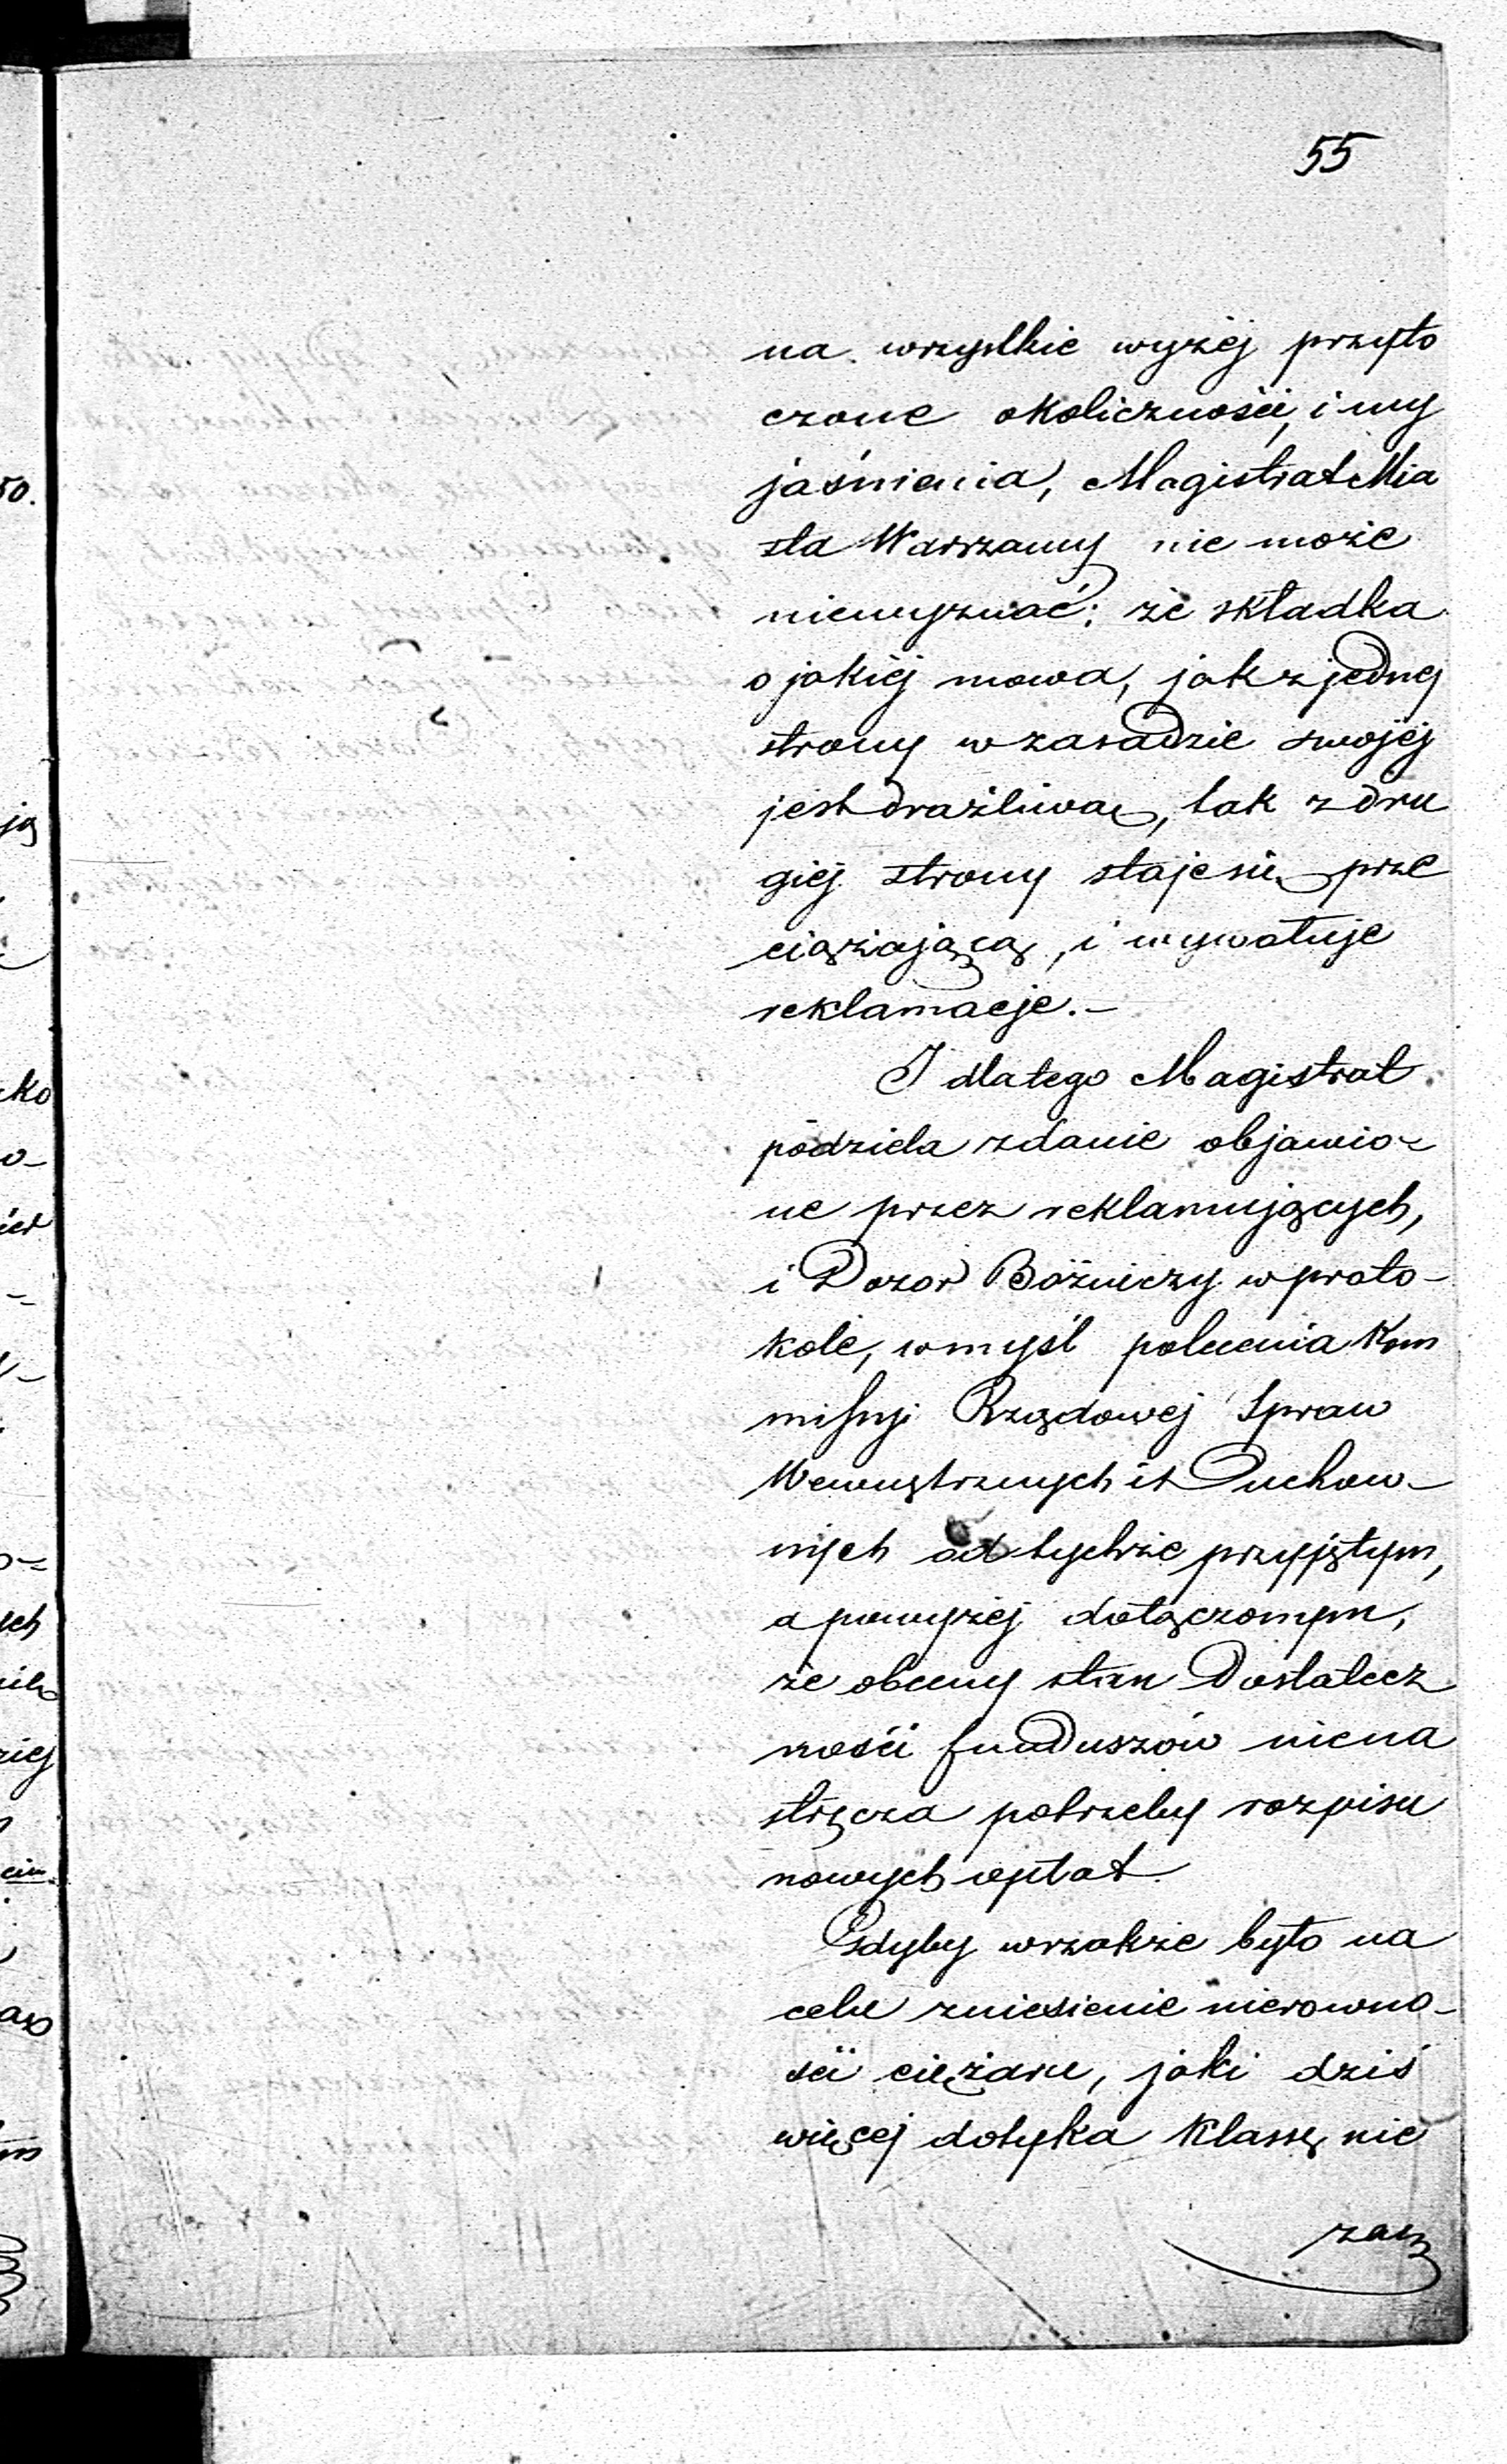 55
na wszystkie wyżej przyto
czone okoliczności, i wy
jaśnienia, Magistrat Mia
sta Warszawy nie może
niewyznać; że składka
o jakiéj mowa, jak z jednej
strony w zasadzie swojéj
jest drażliwą, tak z dru
giéj strony staje się prze
ciążającą, i wywołuje
reklamacje.-
I dlatego Magistrat
podziela zdanie objawio-
ne przez reklamujących,
i Dozor Bóżniczy w proto-
kole, w myśl polecenia Kom
missyi Rządowej Spraw
Wewnętrznych i Duchow-
nych od tychże przyjętym,
a powyżej dołączonym,
że obecny stan Dostatecz
ności funduszów niena
stręcza potrzeby rozpisu
nowych opłat.
Gdyby wszakże było na
celu zniesienie nierówno-
ści ciężaru, jaki dziś
więcej dotyka klassę nie
zam
50.
ją
ko
o-
ych
ziej